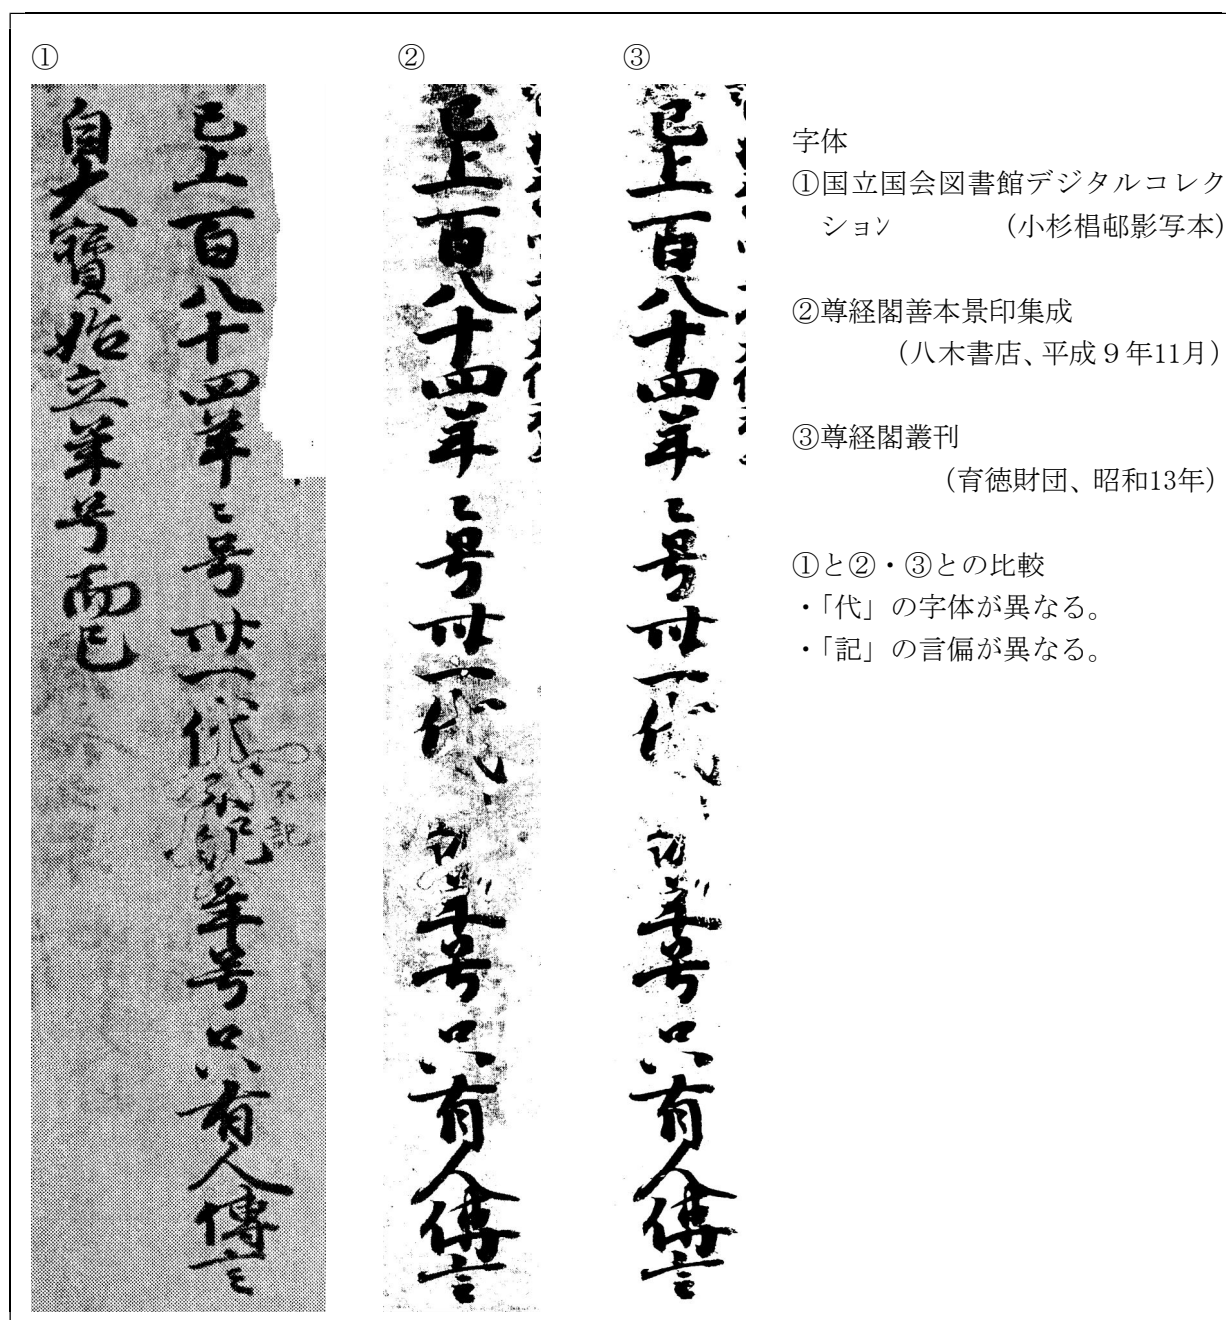 ①
已上百八十四年〻号丗一代不記年号只有人傳言
不記
自大寶始立年号而已
②
已上百八十四年
〻号丗一代
年号只有人傳言
③
已上百八十四年
〻号丗一代
年号只有人傳言
字体
①国立国会図書館デジタルコレク
ション　　　（小杉榲邨影写本）
②尊経閣善本景印集成
（八木書店、平成９年11月）
③尊経閣叢刊
（育徳財団、昭和13年）
①と②・③との比較
・「代」の字体が異なる。
・「記」の言偏が異なる。